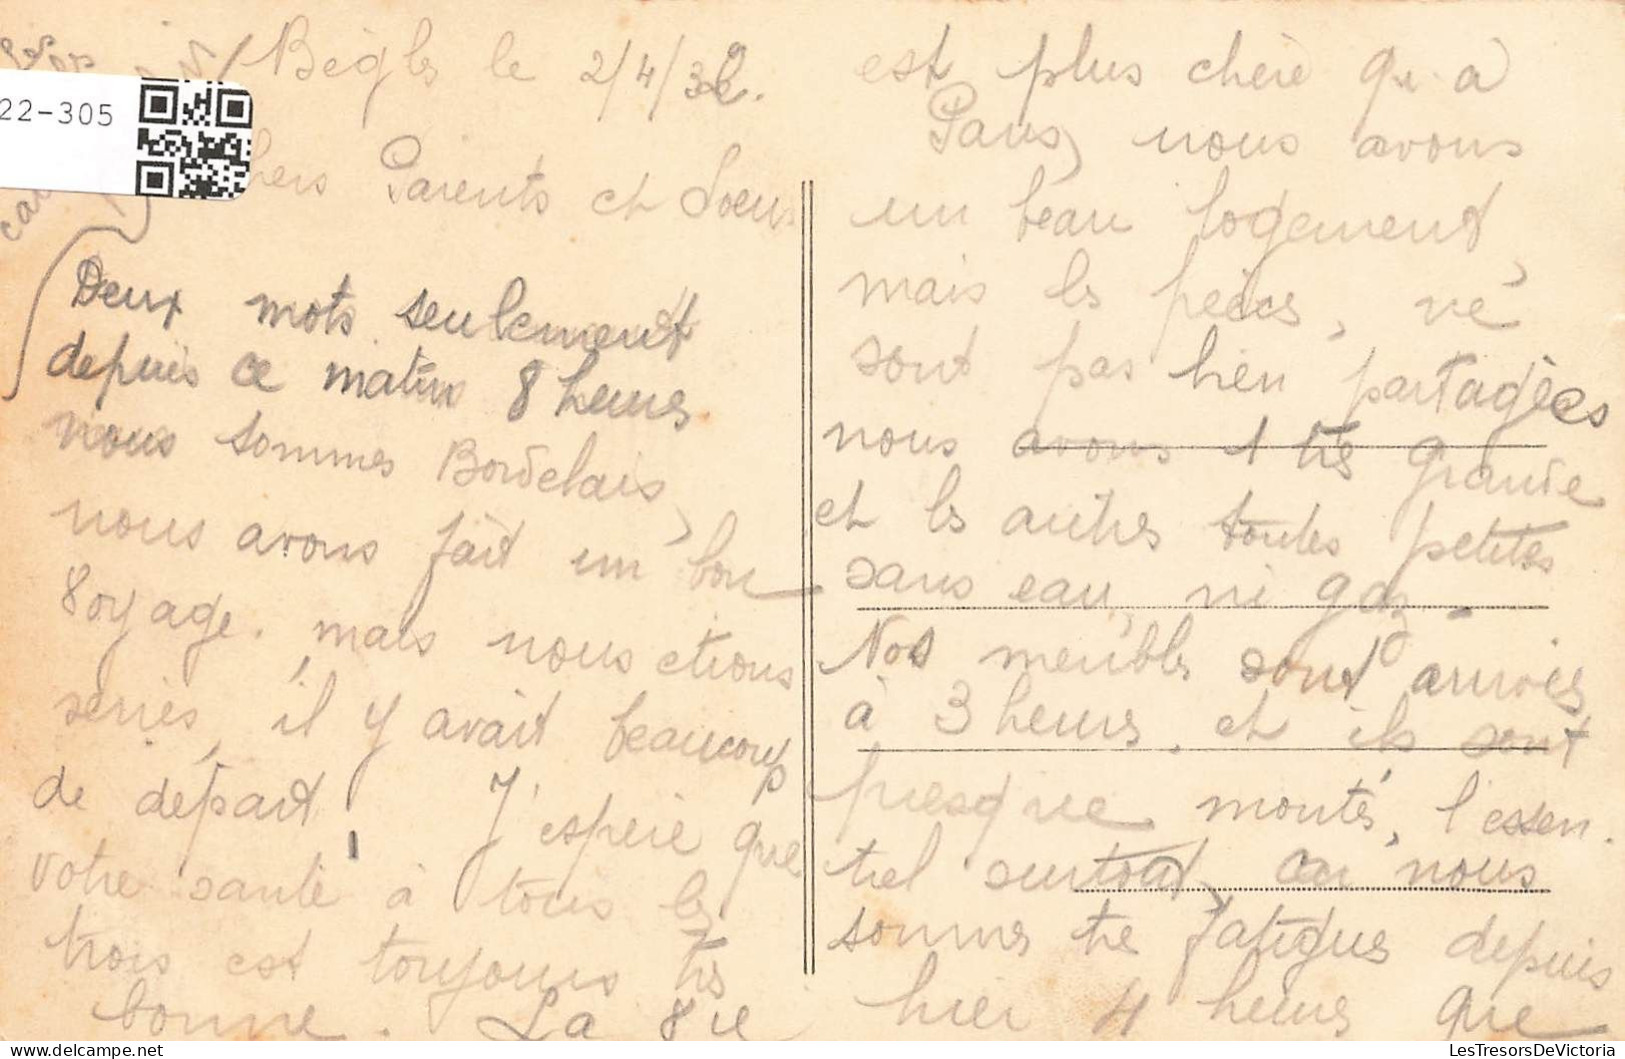 22-305
Bègles le 2/4/32.
hers Parents et Soeur
Deux mots seulement
depuis ce matin 8 heures
nous sommes Bordelais,
nous avons fait un bon
8oyage. mais nous étions
serrés, il y avait beaucoup
de départ! J'espère que
votre santé à tous les
trois est toujours très
bonne. La 8ie
est plus chère qu'à
Paris, nous avons
un beau logement,
mais les pièces, né
sont pas bien partagées
nous avons 1 très grande
et les autres toutes petites
sans eau, ni gaz.
Nos meubles sont arrivés
à 3 heures, et ils sont
presque montés, l'essen.
tiel surtout, car nous
sommes très fatigués depuis
hier 4 heures que
LesTresorsDeVictoria